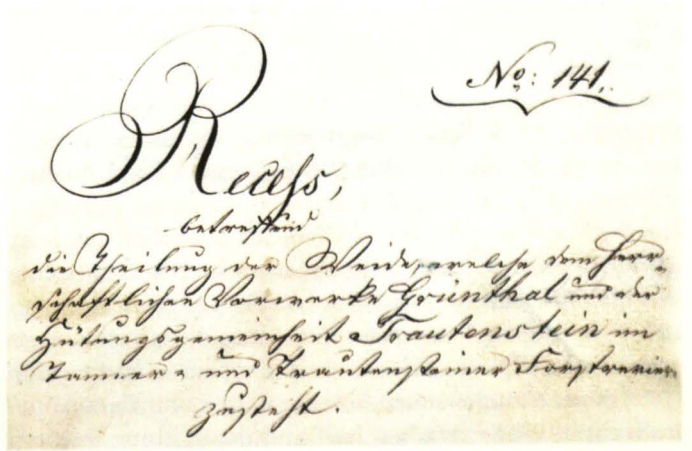 No: 141.
Recess,
betreffend
die Theilung der Weide, welche dem Herr-
schaftlichen Vorwerke Grünthal und der
Hütungsgemeinheit Trautenstein im
Tanner- und Trautensteiner Forstrevier
zusteht.